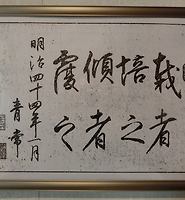 栽者
培之
傾者
覆之
明治四十四年一月